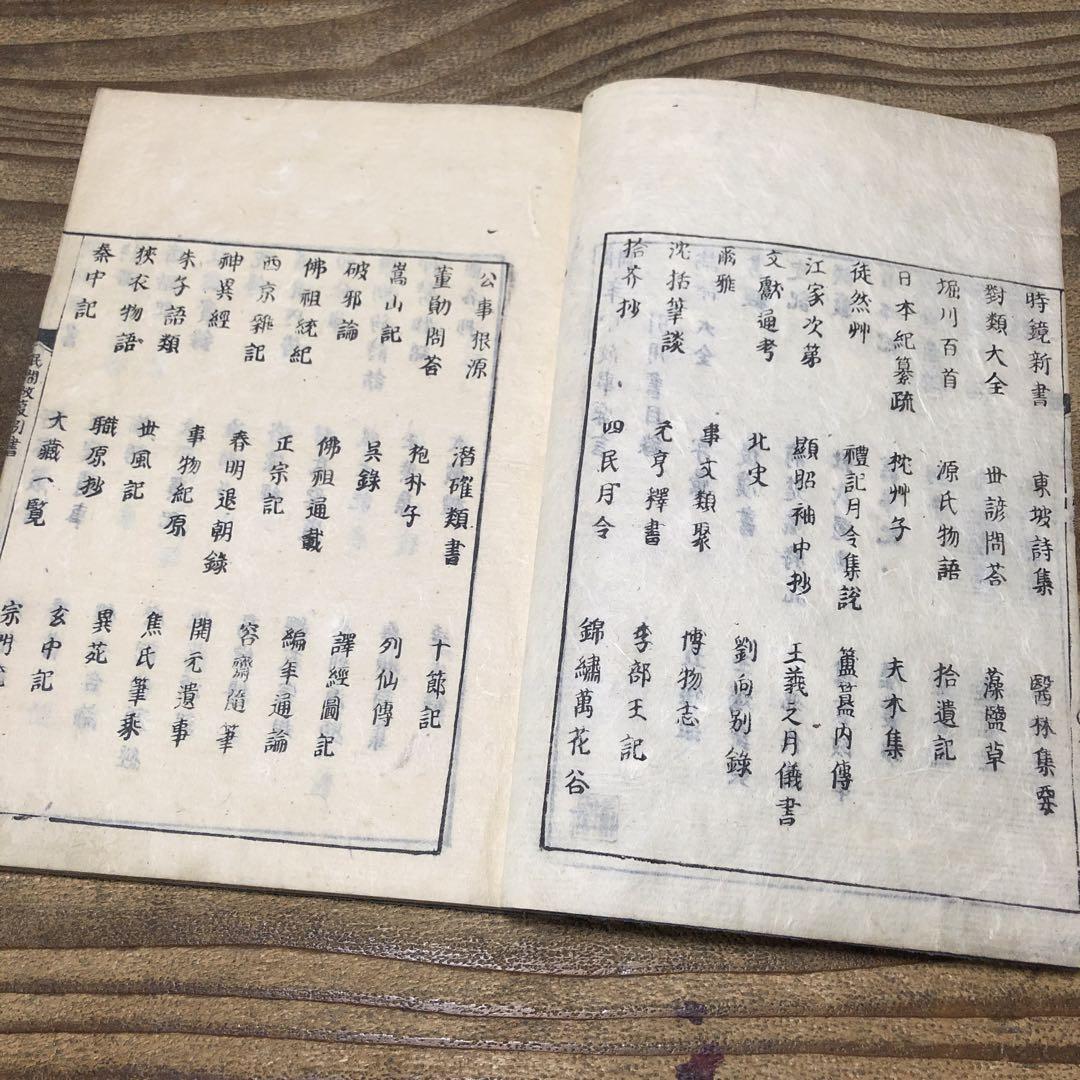 時鏡新書 東坡詩集 醫林集要
對類大全 丗諺問荅 藻鹽草
堀川百首 源氏物語 拾遺記
日本紀纂疏 枕艸子 夫木集
徒然艸 禮記月令集說 簠簋内傳
江家次第 顯昭袖中抄 王羲之月儀書
文獻通考 北史 劉向别錄
爾雅 事文類聚 博物志
沈括筆談 元亨釋書 李部王記
拾芥抄 四民月令 錦繡萬花谷
公事根源 潛確類書 十節記
董勛問荅 抱朴子 列仙傳
嵩山記 吳錄 譯經圖記
破邪論 佛祖通載 編年通論
佛祖統紀 正宗記 容齋隨筆
西京雜記 春明退朝錄 開元遺事
神異經 事物紀原 焦氏筆乘
朱子語類 丗風記 異苑
狹衣物語 職原抄 玄中記
秦中記 大藏一覽 宗門
民間 引書